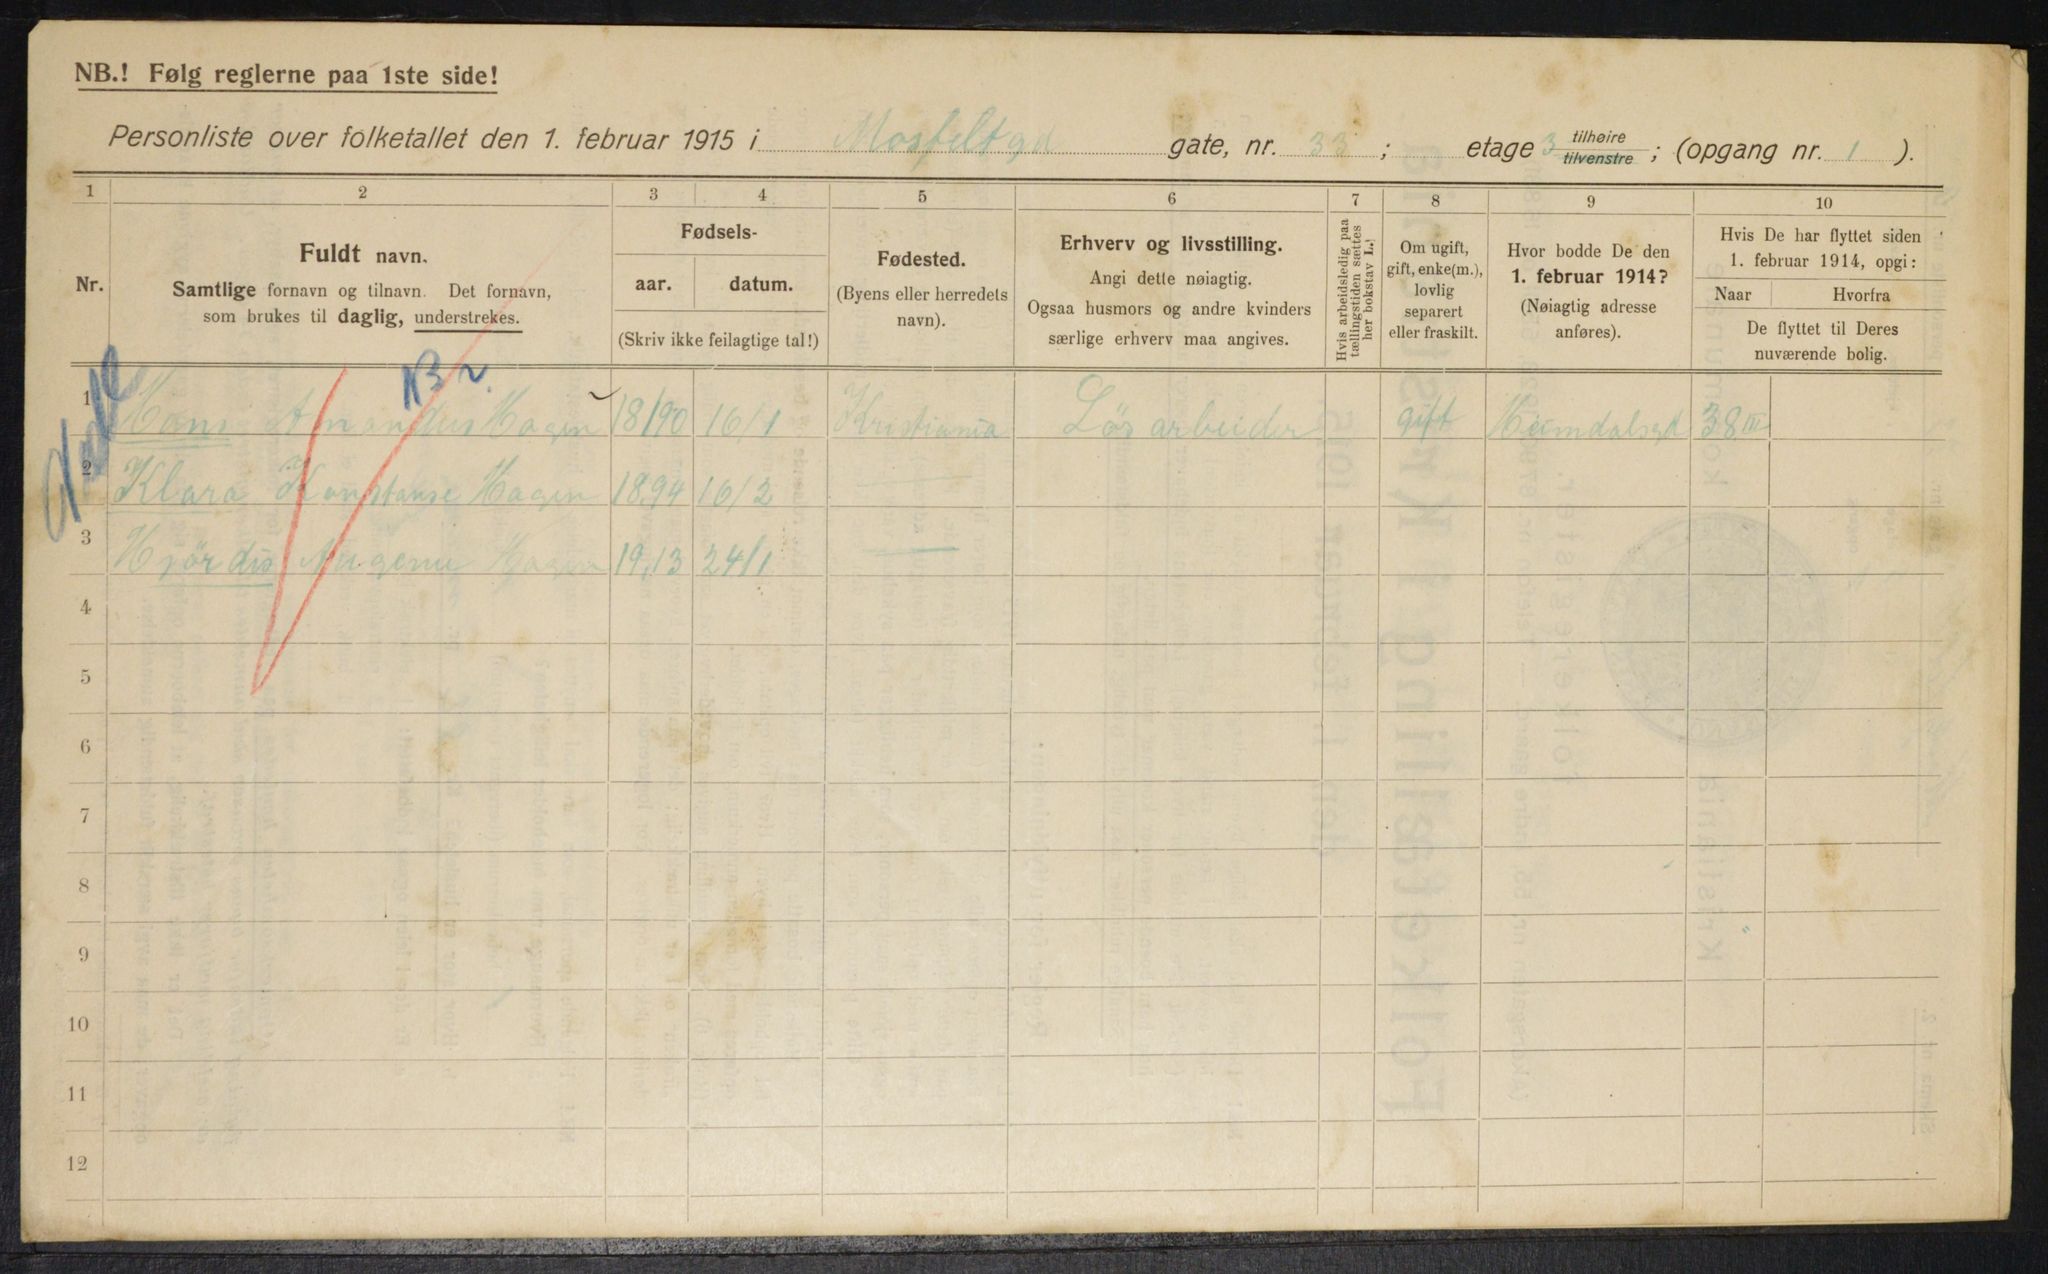 NB.! Følg reglerne paa 1ste side!
Personliste over folketallet den 1. februar 1915 i Mosfeltgd gate, nr. 33 ; etage 3 tilhøire / tilvenstre ; (opgang nr. 1 ).
1 2 3 4 5 6 7 8 9 10
Nr.
Fuldt navn.
Samtlige fornavn og tilnavn. Det fornavn,
som brukes til daglig, understrekes.
Fødsels-
aar. datum.
(Skriv ikke feilagtige tal!)
Fødested.
(Byens eller herredets
navn).
Erhverv og livsstilling.
Angi dette nøiagtig.
Ogsaa husmors og andre kvinders
særlige erhverv maa angives.
Hvis arbeidsledig paa
tællingstiden sættes
her bokstav L.!
Om ugift,
gift, enke(m.),
lovlig
separert
eller fraskilt.
Hvor bodde De den
1. februar 1914?
(Nøiagtig adresse
anføres).
Hvis De har flyttet siden
1. februar 1914, opgi:
Naar Hvorfra
De flyttet til Deres
nuværende bolig.
1 Hans Amandus Hagen 18/90 16/1 Kristiania Løsarbeider gift Heimdalsgt 38 III
2 Klara Konstanse Hagen 18,94 16/2
3 Hjördis Hagen 19,13 24/1
4
5
6
7
8
9
10
11
12